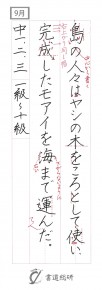 9月
島の人々はヤシの木をころとして使い、
完成したモアイを海まで運んだ。
中一・二・三 一級～十級
書道総研